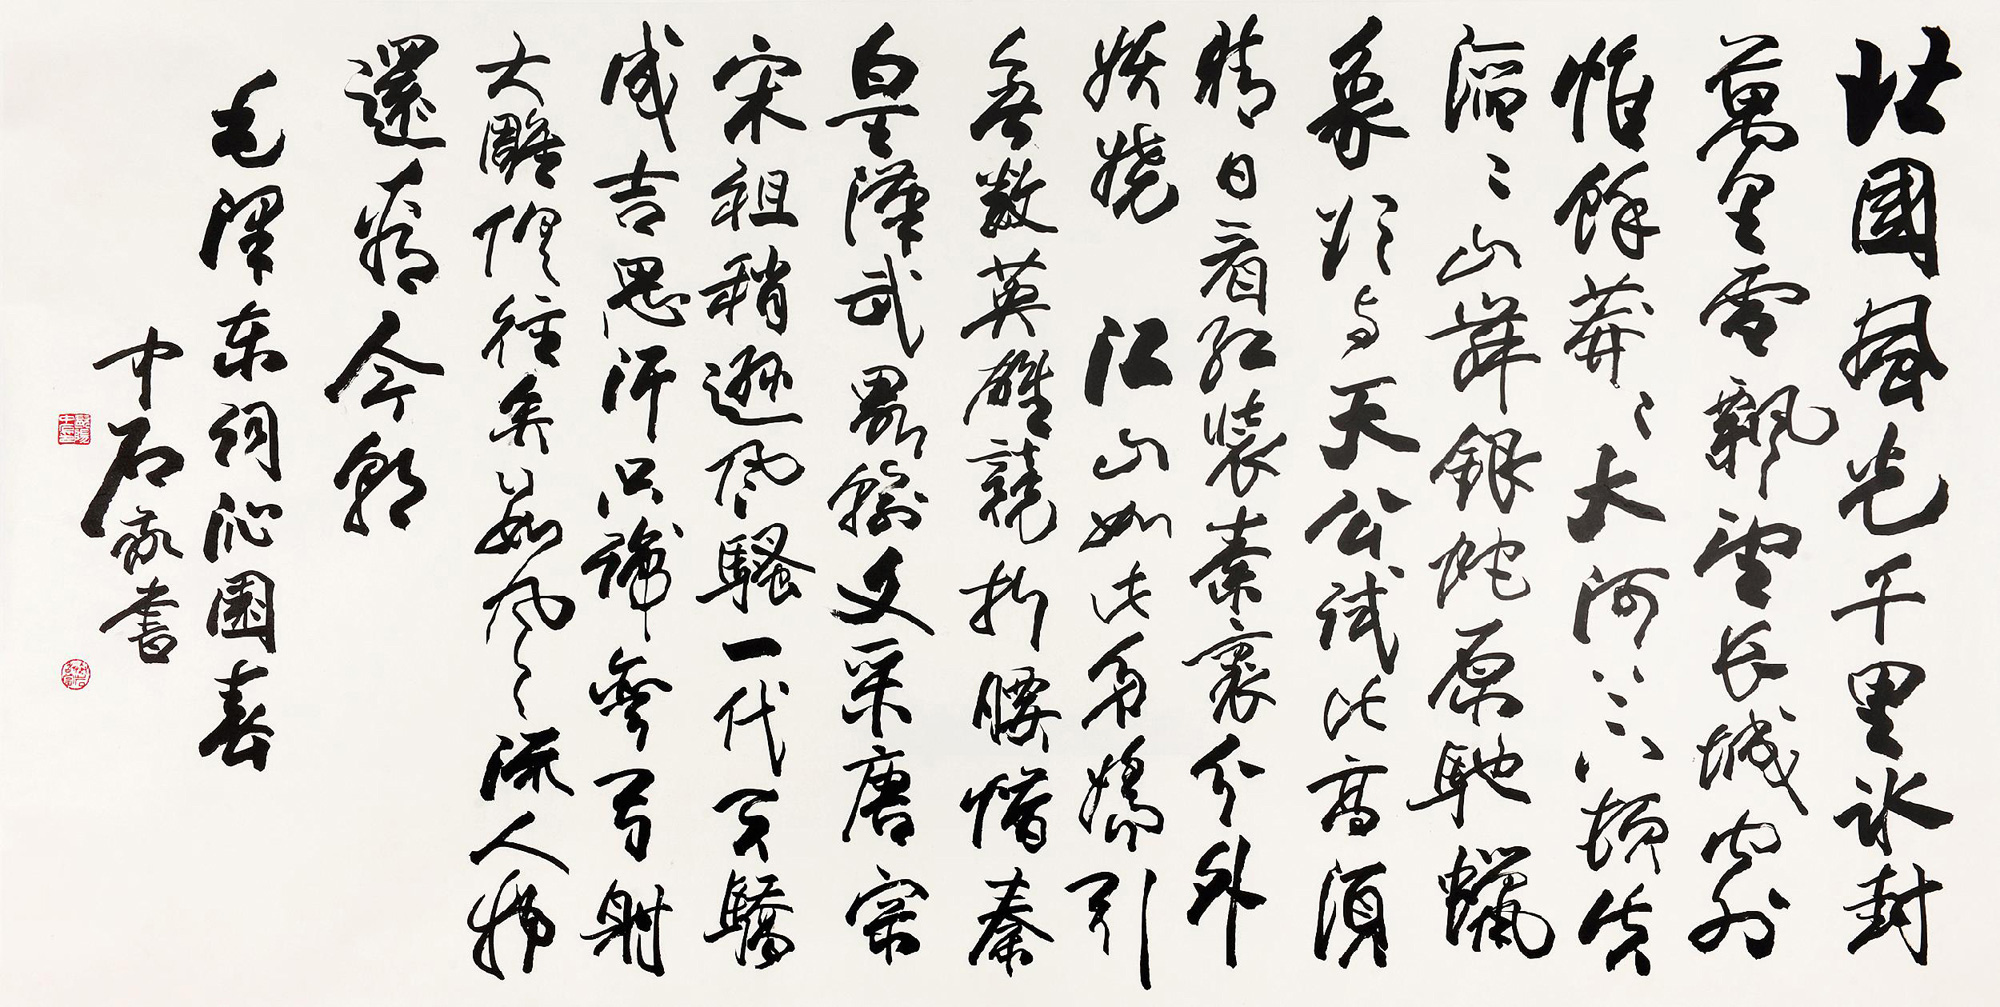 北國風光千里冰封
萬里雪飄望长城内外
惟餘莽〻大河上下頓失
滔〻山舞銀蛇原馳蠟
象欲与天公試比高須
晴日看紅裝素裹分外
妖嬈 江山如此多嬌引
無數英雄競折腰惜秦
皇漢武略輸文采唐宗
宋祖稍遜风騷一代天驕
成吉思汗只識彎弓射
大雕俱往矣數风流人物
還看今朝
毛澤东詞沁園春
中石敬書